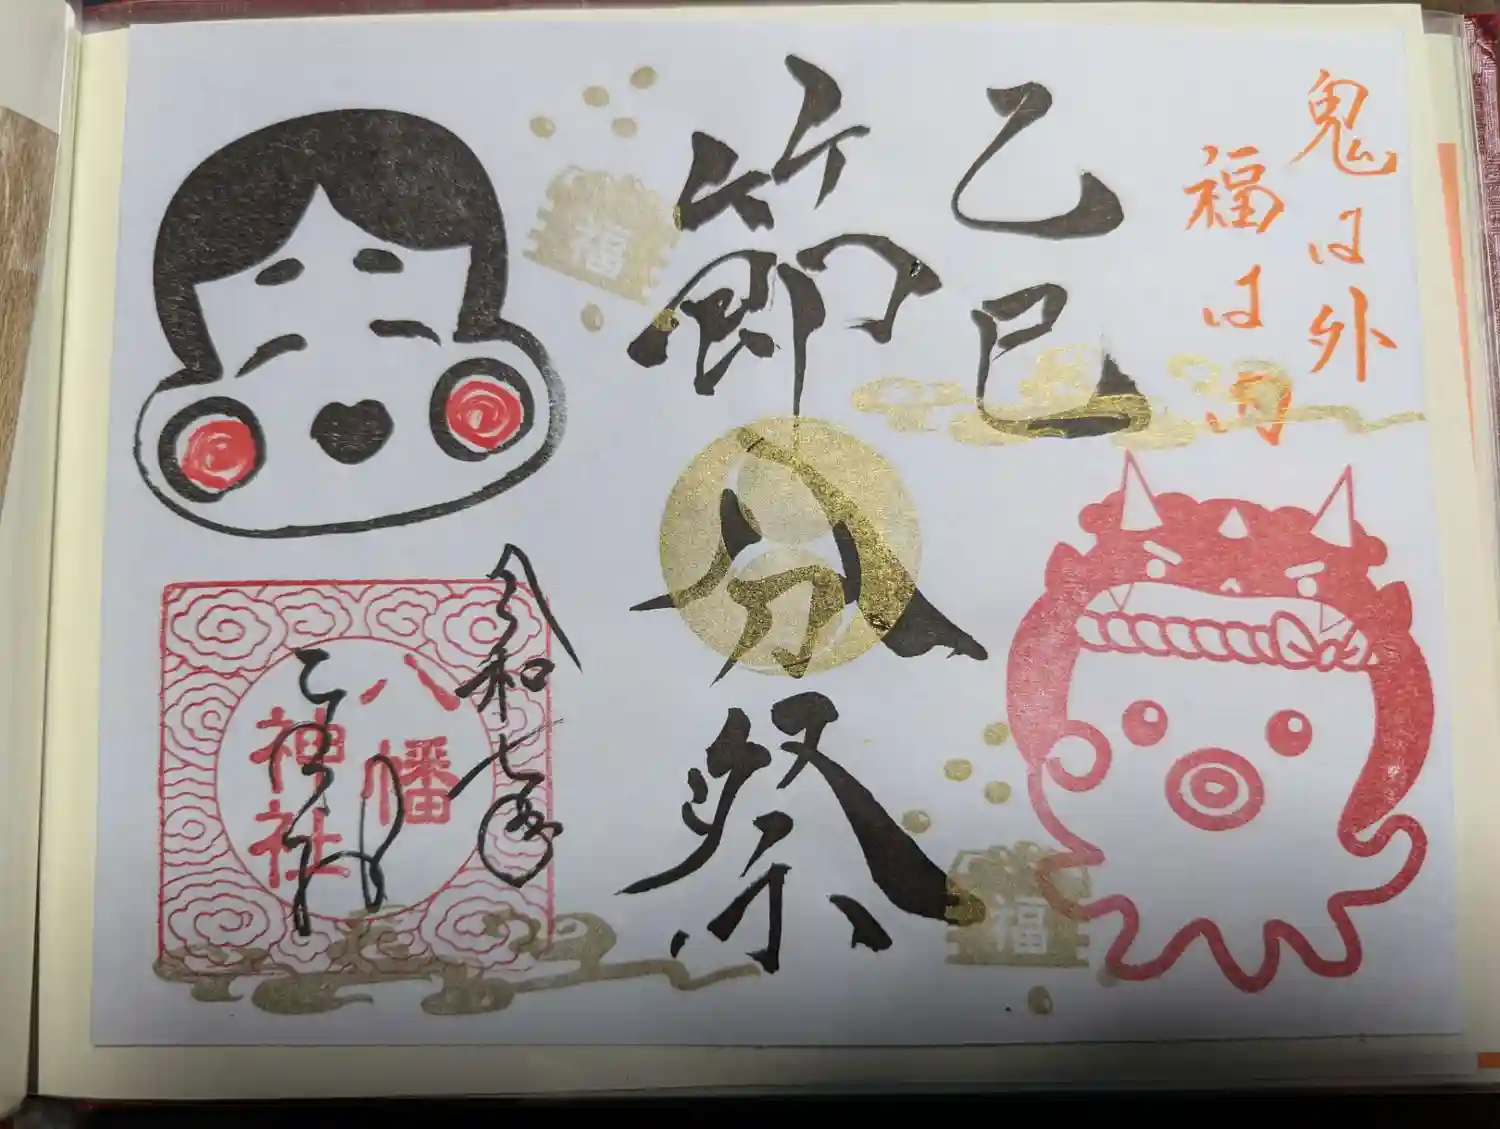 鬼は外
福は内
乙巳
節分祭
福
福
令和七年
八幡
神社